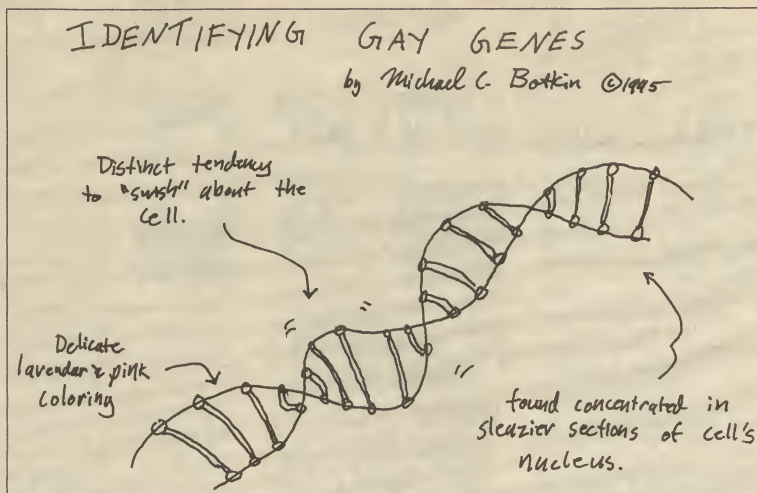 IDENTIFYING GAY GENES
by Michael C. Botkin ©1995
Distinct tendency
to "swish" about the
cell.
Delicate
lavendar & pink
coloring
found concentrated in
sleazier sections of cell's
nucleus.